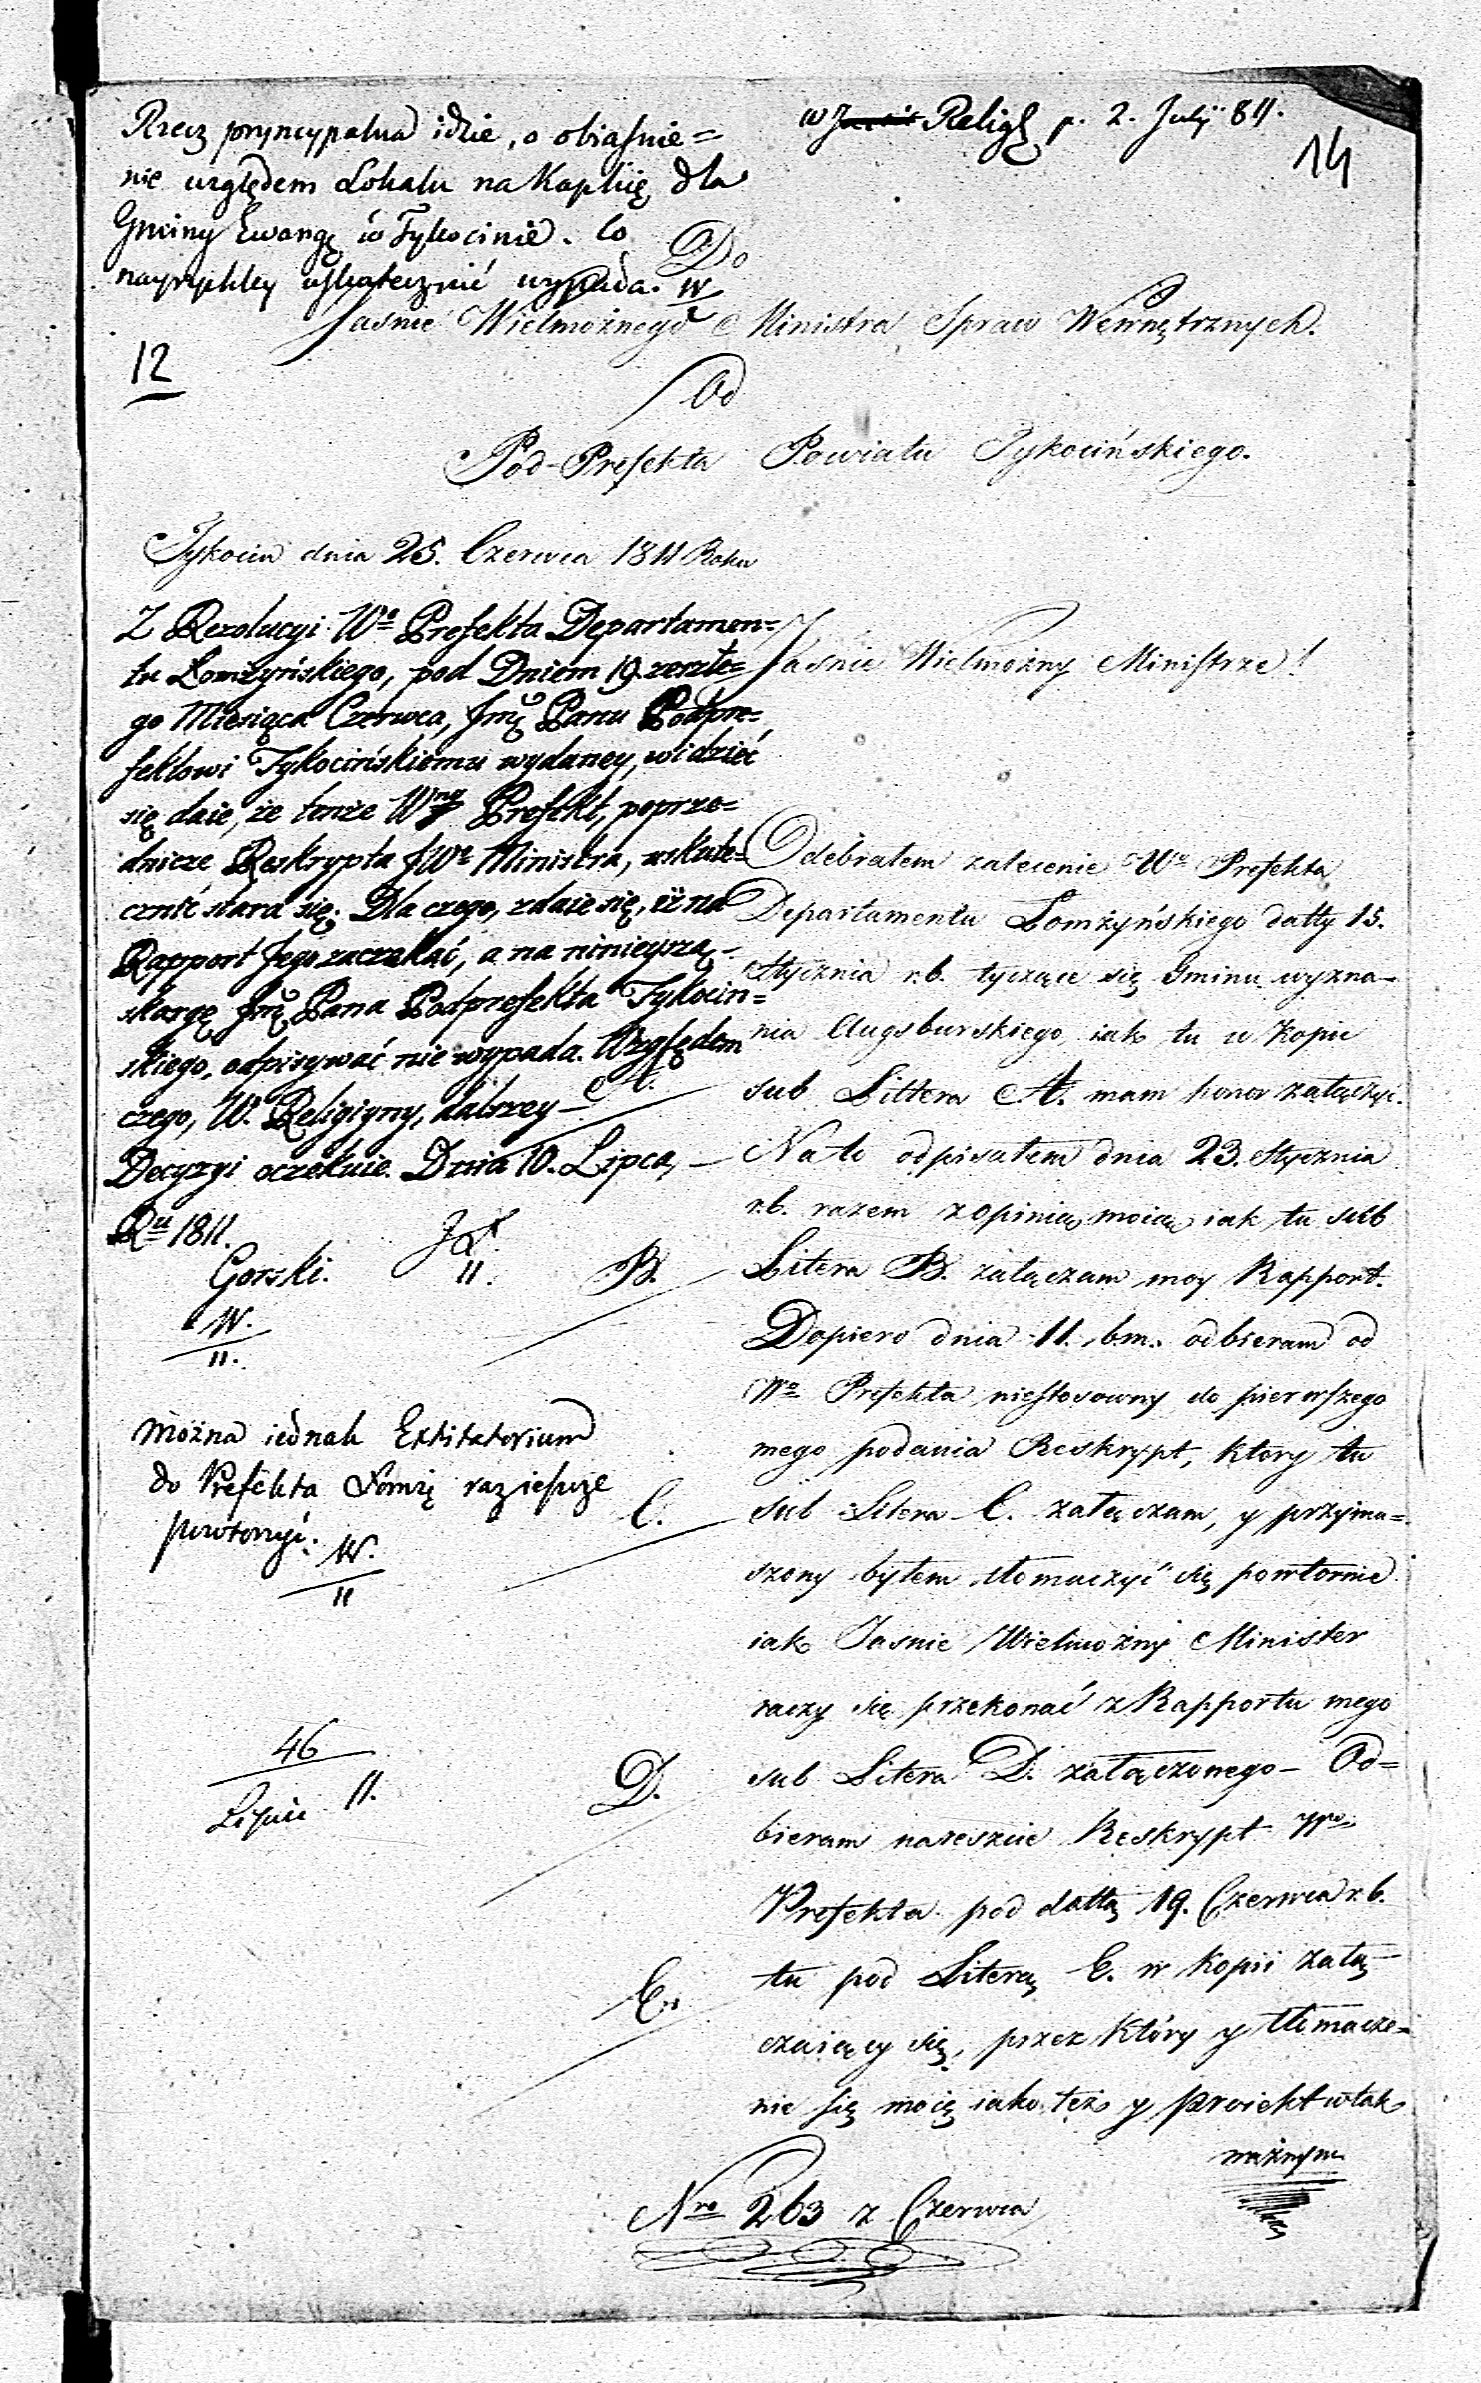 Rzecz pryncypalna idzie, o obiaśnie=
nie względem Lokalu na Kaplicę dla
Gminy Ewangę w Tykocinie. Co
nayrychley uskutecznić wypada. W
w Religę p. 2. July 811.
14
12
Do
Jaśnie Wielmożnego Ministra Spraw Wewnętrznych.
Od
Pod-Prefekta Powiatu Tykocińskiego.
Tykocin dnia 25. Czerwca 1811 Roku
Z Rezolucyi Wo Prefekta Departamen=
tu Łomżyńskiego, pod Dniem 19. zeszłe=
go Miesiąca Czerwca, Jmę Panu Podpre=
fektowi Tykocińskiemu wydaney, widzieć
się daie, że tenże Wny Prefekt, poprze=
dnicze Reskrypta JWo Ministra, uskute=
cznić stara się. Dla czego, zdaie się, iż na
Rapport Jego zaczekać, a na ninieyszą
skargę Jmę Pana Podprefekta Tykocin=
skiego, odpisywać nie wypada. Względem
czego, W. Religiyny, dalszey
Decyzyi oczekuie. Dnia 10. Lipca,
Ru 1811.
Gorski.
W.
11.
11.
Można iednak Extitatorium
do Prefekta Łomżę raz ieszcze
powtorzyć. W.
11
46
Lipca 11.
Jaśnie Wielmożny Ministrze!
Odebrałem zalecenie Wo Prefekta
Departamentu Łomżyńskiego datty 15.
Stycznia r.b. tyczące się Gminu wyzna-
nia Augsburskiego, iak tu w Kopii
A.
sub Littera A. mam honor załączyć.
Na to odpisałem dnia 23. Stycznia
r.b. razem z opinią moią iak tu sub
B.
Litera B. załączam moy Rapport.
Dopiero dnia 11. b.m. odbieram od
Wo Prefekta niestosowny do pierwszego
mego podania Reskrypt, ktory tu
C.
sub Litera C. załączam, y przymu=
szony byłem tłomaczyć się powtornie
iak Jaśnie Wielmożny Minister
raczy się przekonać z Rapportu mego
D.
sub Litera D. załączonego - Od=
bieram nareszcie Reskrypt Wo
Prefekta pod dattą 19. Czerwca r.b.
E.
tu pod Literą E. w Kopii załą-
czaiący się, przez który y tłomacze-
nie się moię iako też y proiekt w tak
ważnym
Nro 263 z Czerwca